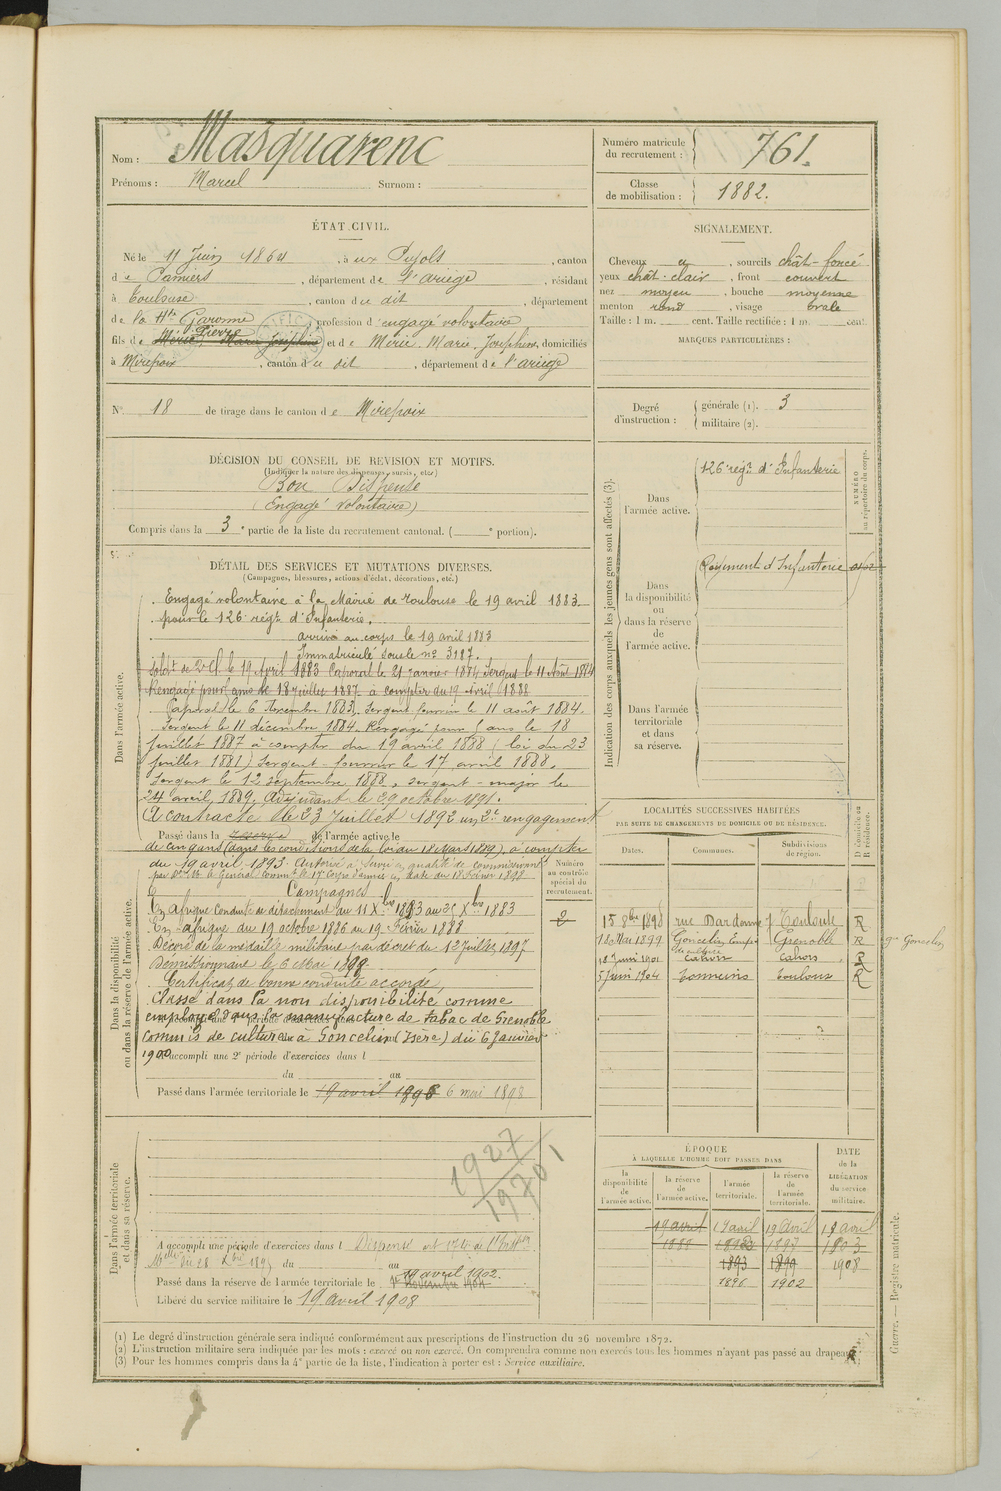 Nom : Masquarenc
Prénoms : Marcel Surnom :
Numéro matricule du recrutement : 761.
Classe de mobilisation : 1882.
ÉTAT CIVIL.
Né le 11 Juin 1864, à ux Pujols, canton
de Pamiers, département de l'ariège, résidant
à Toulouse, canton du dit, département
de la Hte Garonne, profession d'engagé volontaire
Pierre
fils de Mérie, Marie Joséphine et de Mérie, Marie, Joséphine, domiciliés
à Mirepoix, canton du dit, département de l'ariège
N° 18 de tirage dans le canton de Mirepoix
SIGNALEMENT.
Cheveux a, sourcils chât-foncé
yeux chât-clair, front couvert
nez moyen, bouche moyenne
menton rond, visage ovale
Taille : 1 m. cent. Taille rectifiée : 1 m. cent.
MARQUES PARTICULIÈRES :
Degré d'instruction : générale (1). 3
militaire (2).
DÉCISION DU CONSEIL DE REVISION ET MOTIFS.
(Indiquer la nature des dispenses, sursis, etc.)
Bon Dispensé
(Engagé volontaire)
Compris dans la 3e partie de la liste du recrutement cantonal. ( e portion).
DÉTAIL DES SERVICES ET MUTATIONS DIVERSES.
(Campagnes, blessures, actions d'éclat, décorations, etc.)
Dans l'armée active.
Engagé volontaire à la Mairie de Toulouse le 19 avril 1883.
pour le 126e régt d'Infanterie.
arrivé au corps le 19 avril 1883
Immatriculé sous le no 3187.
Soldt de 2e Cl. le 19 Avril 1883 Caporal le 21 janvier 1884 Sergent le 11 Août 1884
Rengagé pour ans le 18 juillet 1887 à compter du 19 Avril 1888
Caporal le 6 novembre 1883. Sergent fourrier le 11 août 1884.
Sergent le 11 décembre 1884. Rengagé pour 5 ans le 18
juillet 1887 à compter du 19 avril 1888 (loi du 23
juillet 1881) Sergent-fourrier le 17 avril 1888.
Sergent le 12 septembre 1888, sergent-major le
24 avril 1889. Adjudant le 29 octobre 1891.
A contracté le 23 Juillet 1892 un 2e rengagement
Passé dans la réserve de l'armée active le
de cinq ans (dans les conditions de la loi du 18 Mars 1889), à compter
du 19 avril 1893. Autorisé à servir en qualité de commissionné
par Don Mle Général Commt le 17e Corps d'armée en date du 18 Février 1898
Dans la disponibilité ou dans la réserve de l'armée active.
Campagnes
En Afrique conduite de détachement du 11 Xbre 1883 au 25 Xbre 1883
En afrique du 19 octobre 1886 au 19 Février 1888
Décoré de la médaille militaire par décret du 12 Juillet 1897
Démissionnaire le 6 Mai 1898.
Certificat de bonne conduite accordé,
Classé dans la non disponibilité comme
employé dans la manufacture de tabac de Grenoble
Commis de culture à Goncelin (Isère) du 6 Janvier
1900
A accompli une 2e période d'exercices dans l
du au
Passé dans l'armée territoriale le 19 avril 1898 6 mai 1898
Numéro au contrôle spécial du recrutement.
Indication des corps auxquels les jeunes gens sont affectés (3).
NUMÉRO au répertoire du corps.
Dans l'armée active. 126e régt d'Infanterie
Dans la disponibilité ou dans la réserve de l'armée active. Régiment d'Infanterie
Dans l'armée territoriale et dans sa réserve.
LOCALITÉS SUCCESSIVES HABITÉES
PAR SUITE DE CHANGEMENTS DE DOMICILE OU DE RÉSIDENCE.
Dates. Communes. Subdivisions de région. D domicile ou R résidence.
15 8bre 1898 rue Dardenne 7 Toulouse R
18 Mai 1899 Goncelin Grenoble R gie Goncelin
10 Juin 1901 Cahors Cahors R
5 Juin 1904 Tonneins Toulouse R
Dans l'armée territoriale et dans sa réserve.
1927
19701
A accompli une période d'exercices dans l Dispensé
du au
Passé dans la réserve de l'armée territoriale le 19 avril 1902.
Libéré du service militaire le 19 Avril 1908
ÉPOQUE
À LAQUELLE L'HOMME DOIT PASSER DANS
la disponibilité de l'armée active. la réserve de l'armée active. l'armée territoriale. la réserve de l'armée territoriale. DATE de la LIBÉRATION du service militaire.
19 avril 19 avril 19 Avril 19 avril
1888 1893 1897 1903
1893 1899 1908
1896 1902
(1) Le degré d'instruction générale sera indiqué conformément aux prescriptions de l'instruction du 26 novembre 1872.
(2) L'instruction militaire sera indiquée par les mots : exercé ou non exercé. On comprendra comme non exercés tous les hommes n'ayant pas passé au drapeau.
(3) Pour les hommes compris dans la 4e partie de la liste, l'indication à porter est : Service auxiliaire.
Guerre. — Registre matricule.